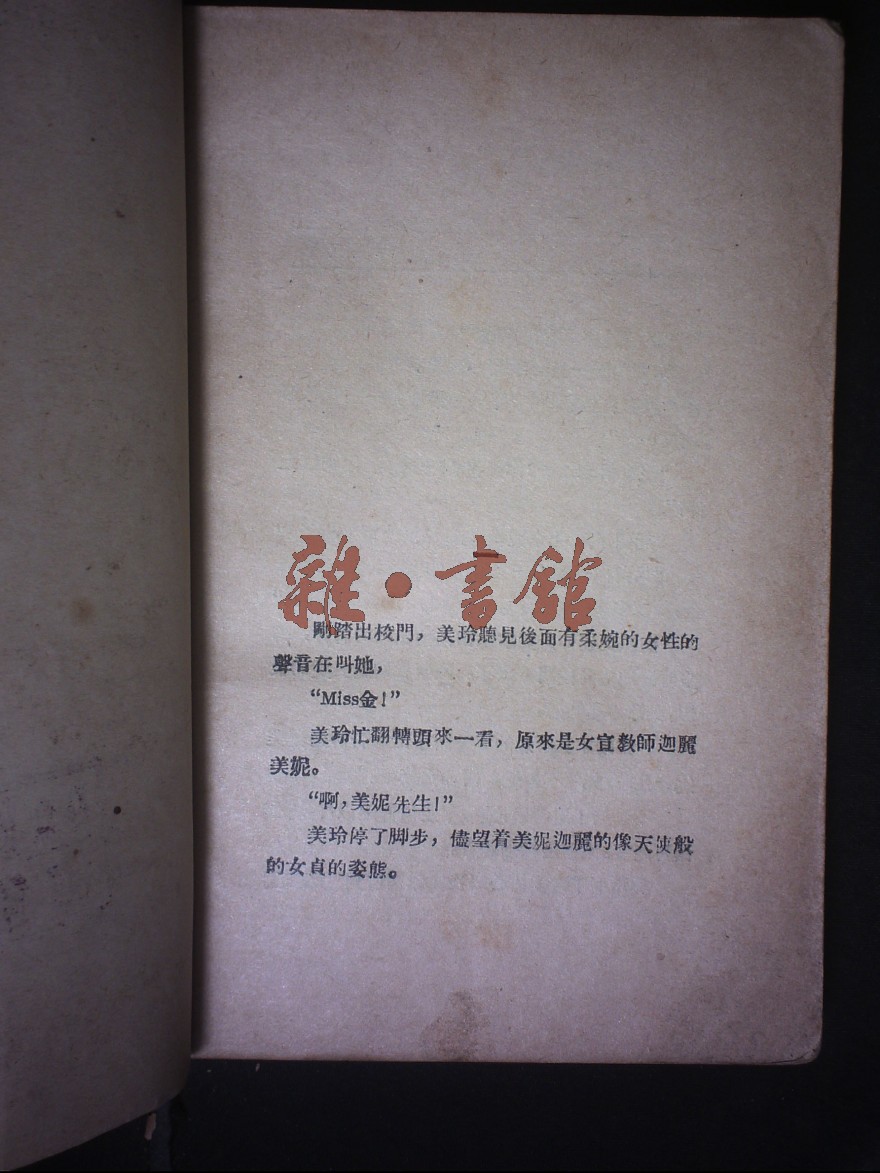 雜·書館
剛踏出校門，美玲聽見後面有柔婉的女性的
聲音在叫她，
“Miss金！”
美玲忙翻轉頭來一看，原來是女宣教師迦麗
美妮。
“啊，美妮先生！”
美玲停了脚步，儘望着美妮迦麗的像天使般
的女貞的姿態。